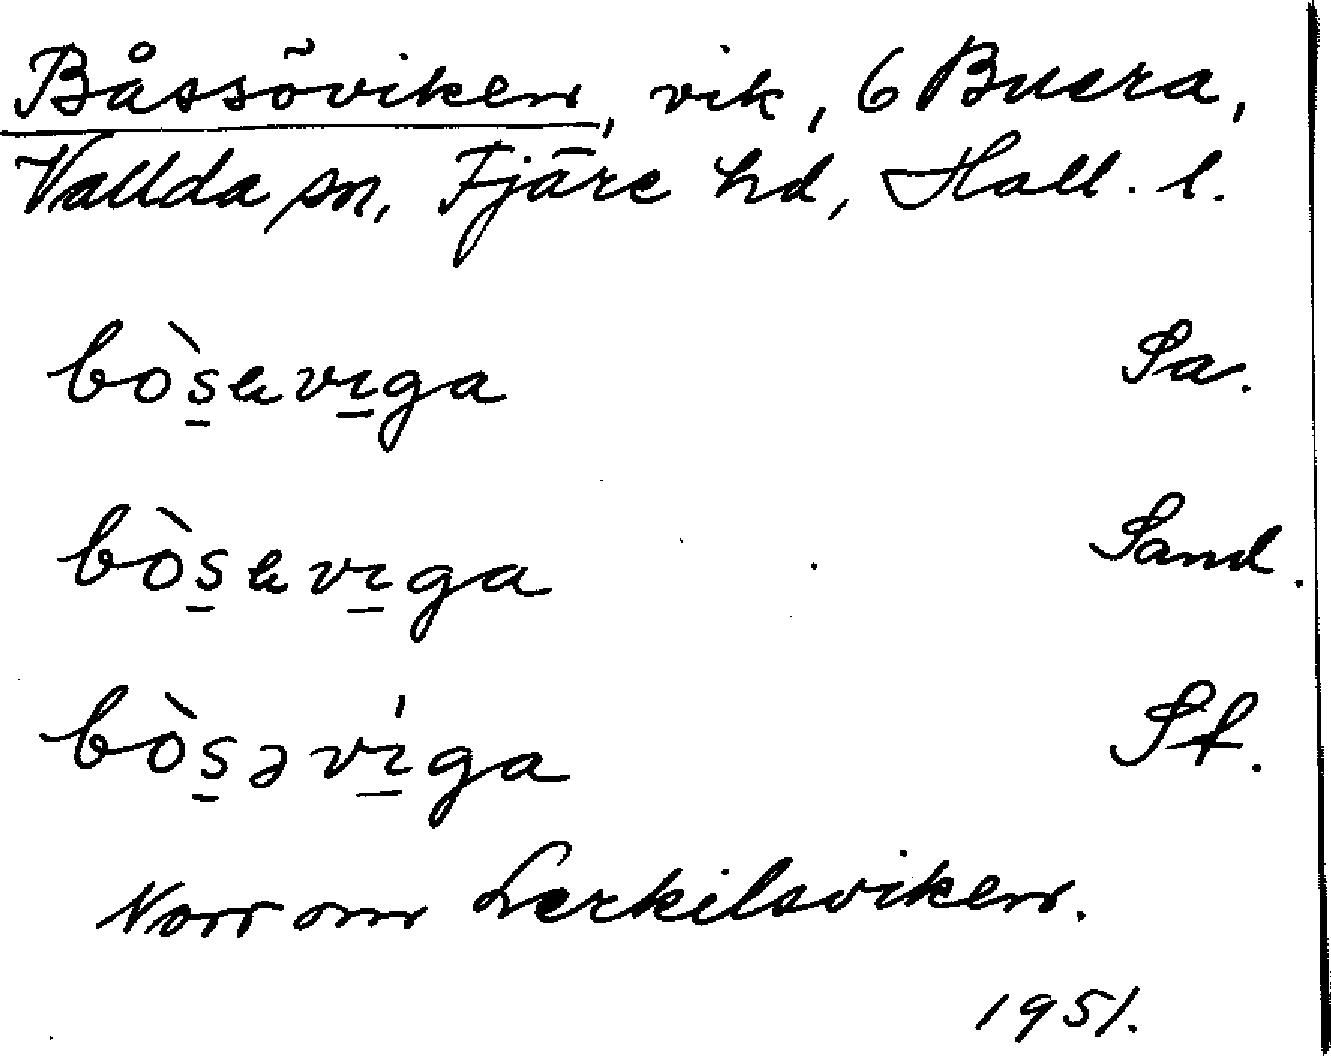 Båssöviken, vik, 6 Buera,
Vallda sn, Fjäre hd, Hall. l.
bò̀s̱ɐvɪ̱ga Sa.
bò̀s̱ɐvɪ̱ga Sand.
bò̀s̱əvɪ̱́ga St.
Norr om Lerkilsviken.
1951.